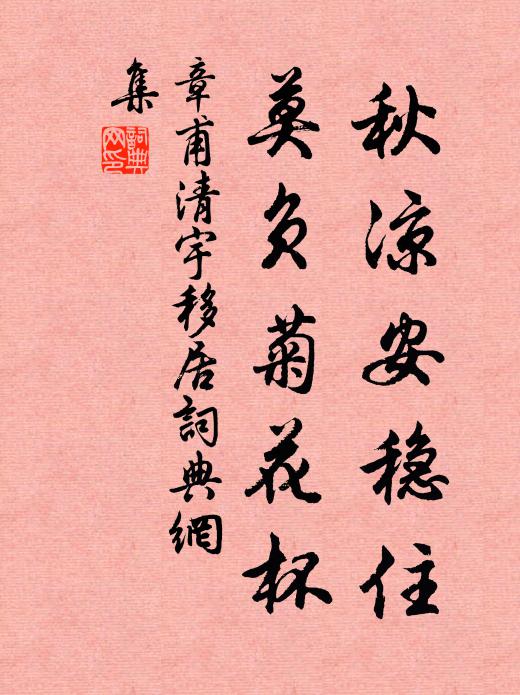 秋凉安稳住
莫负菊花杯
章甫清宇移居詞典網
集
詞典
网印